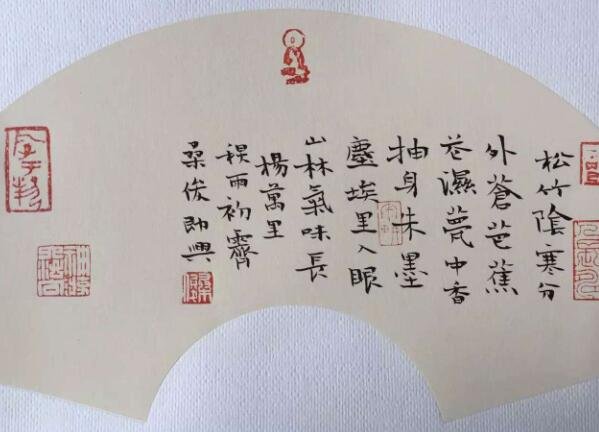 松竹陰寒分
外蒼芭蕉
花濕甃中香
抽身朱墨
塵埃里入眼
山林氣味長
楊萬里
雨初霽
桑俊即興